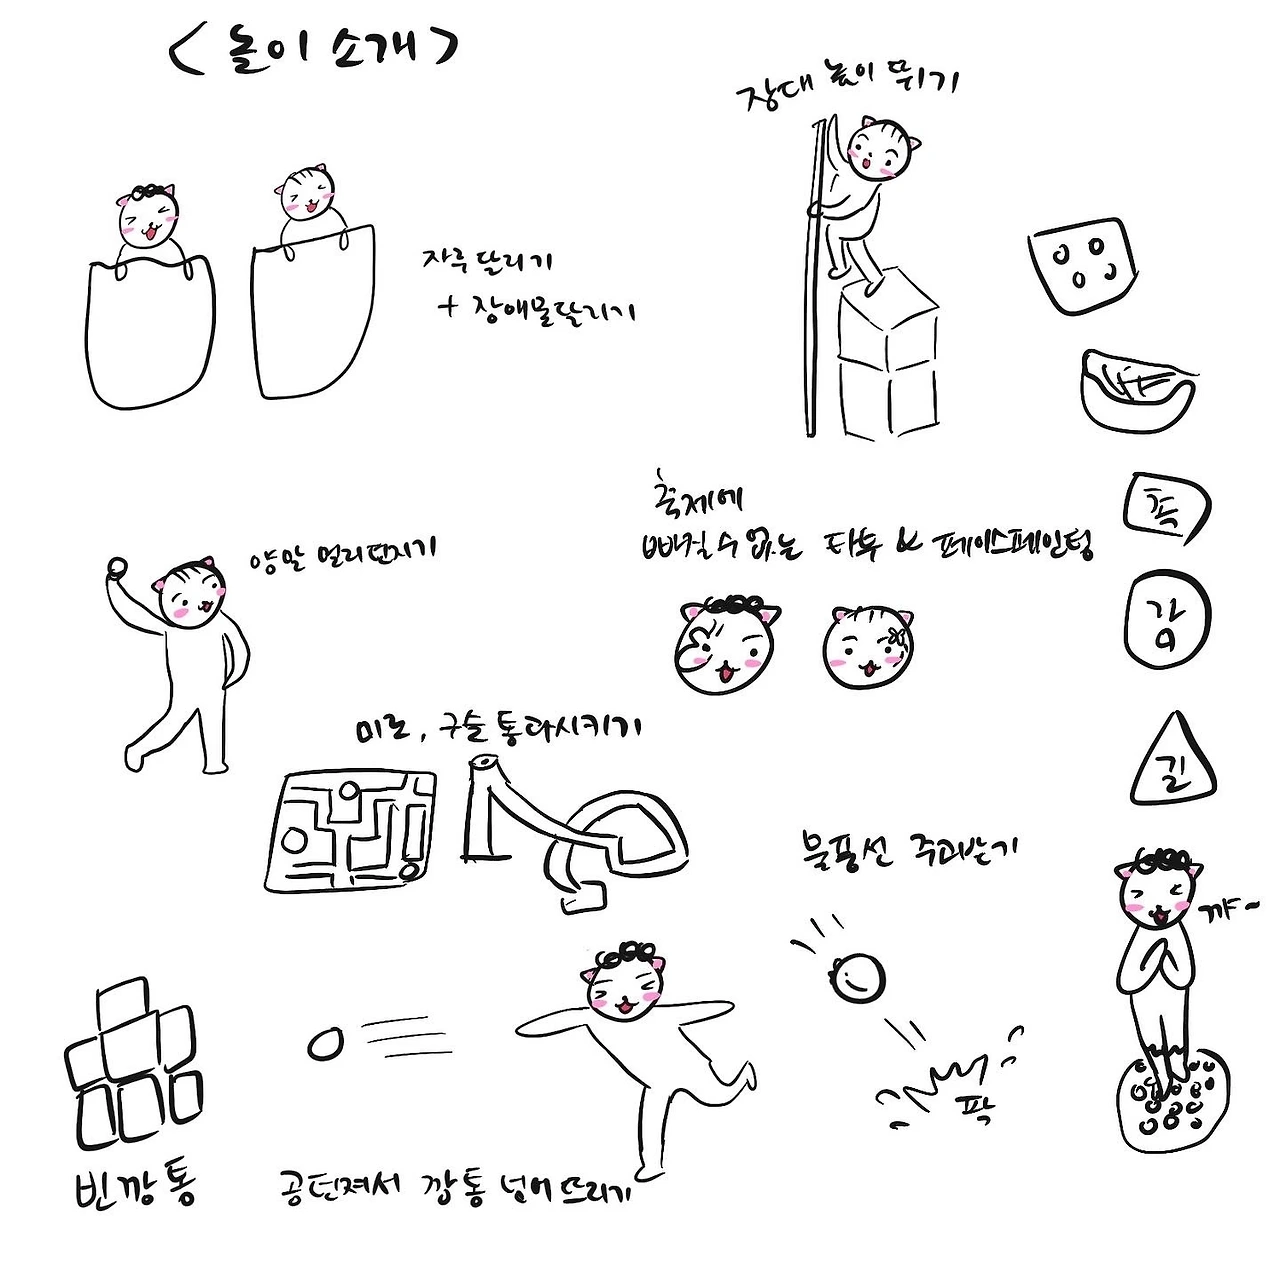 <놀이 소개>
장대 높이 뛰기
자루 달리기
+ 장애물달리기
축제에
빠질 수 없는 타투 & 페이스페인팅
양말 멀리던지기
촉
감
길
미로, 구슬 통과시키기
물풍선 주고받기
꺄~
팍
빈깡통
공던져서 깡통 넘어뜨리기